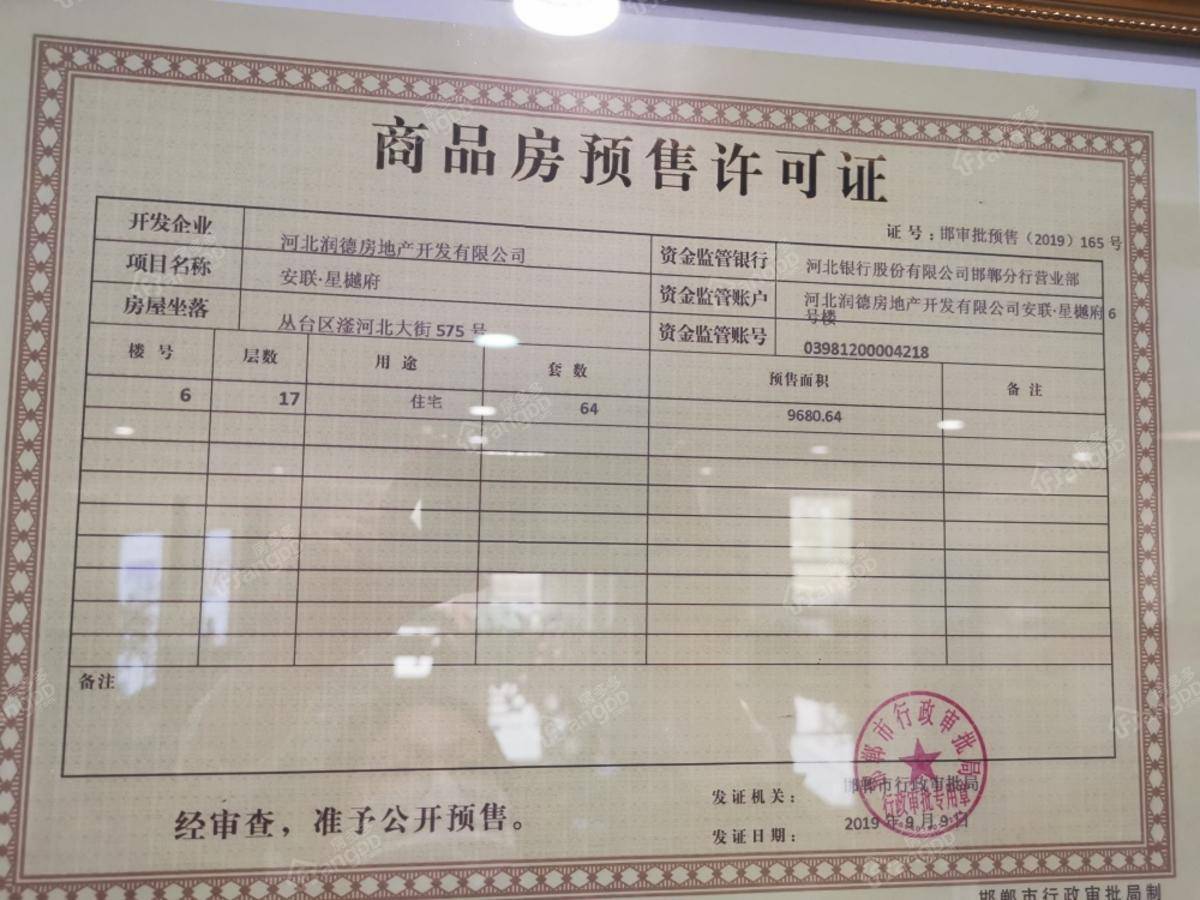 商品房预售许可证
证号：邯审批预售（2019）165号
开发企业 河北润德房地产开发有限公司 资金监管银行 河北银行股份有限公司邯郸分行营业部
项目名称 安联·星樾府 资金监管账户 河北润德房地产开发有限公司安联·星樾府6
号楼
房屋坐落 丛台区滏河北大街575号 资金监管账号 03981200004218
楼号 层数 用途 套数 预售面积 备注
6 17 住宅 64 9680.64
备注
经审查，准予公开预售。
发证机关： 邯郸市行政审批局
发证日期： 2019年9月9日
邯郸市行政审批局
行政审批专用章
邯郸市行政审批局制
房多多
FangDD